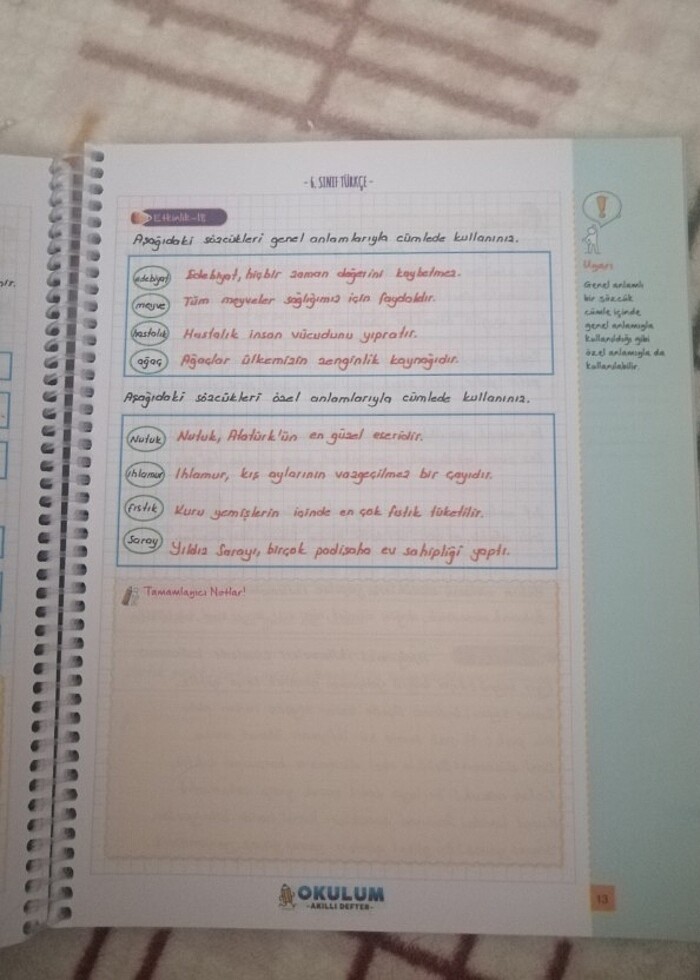 - 6. SINIF TÜRKÇE -
Etkinlik-18
Aşağıdaki sözcükleri genel anlamlarıyla cümlede kullanınız.
edebiyat Edebiyat, hiçbir zaman değerini kaybetmez.
meyve Tüm meyveler sağlığımız için faydalıdır.
hastalık Hastalık insan vücudunu yıpratır.
ağaç Ağaçlar ülkemizin zenginlik kaynağıdır.
Aşağıdaki sözcükleri özel anlamlarıyla cümlede kullanınız.
Nutuk Nutuk, Atatürk'ün en güzel eseridir.
ıhlamur Ihlamur, kış aylarının vazgeçilmez bir çayıdır.
fıstık Kuru yemişlerin içinde en çok fıstık tüketilir.
Saray Yıldız Sarayı, birçok padişaha ev sahipliği yaptı.
Tamamlayıcı Notlar!
Uyarı
Genel anlamlı
bir sözcük
cümle içinde
genel anlamıyla
kullanıldığı gibi
özel anlamıyla da
kullanılabilir.
OKULUM
-AKILLI DEFTER-
13